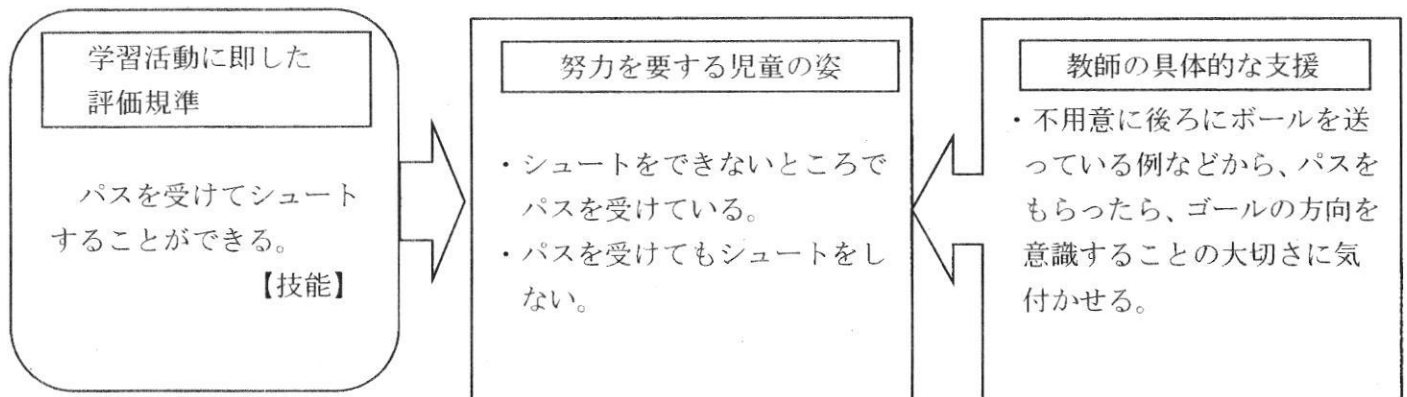 学習活動に即した
評価規準
パスを受けてシュート
することができる。
【技能】
努力を要する児童の姿
・シュートをできないところで
パスを受けている。
・パスを受けてもシュートをし
ない。
教師の具体的な支援
・不用意に後ろにボールを送
っている例などから、パスを
もらったら、ゴールの方向を
意識することの大切さに気
付かせる。